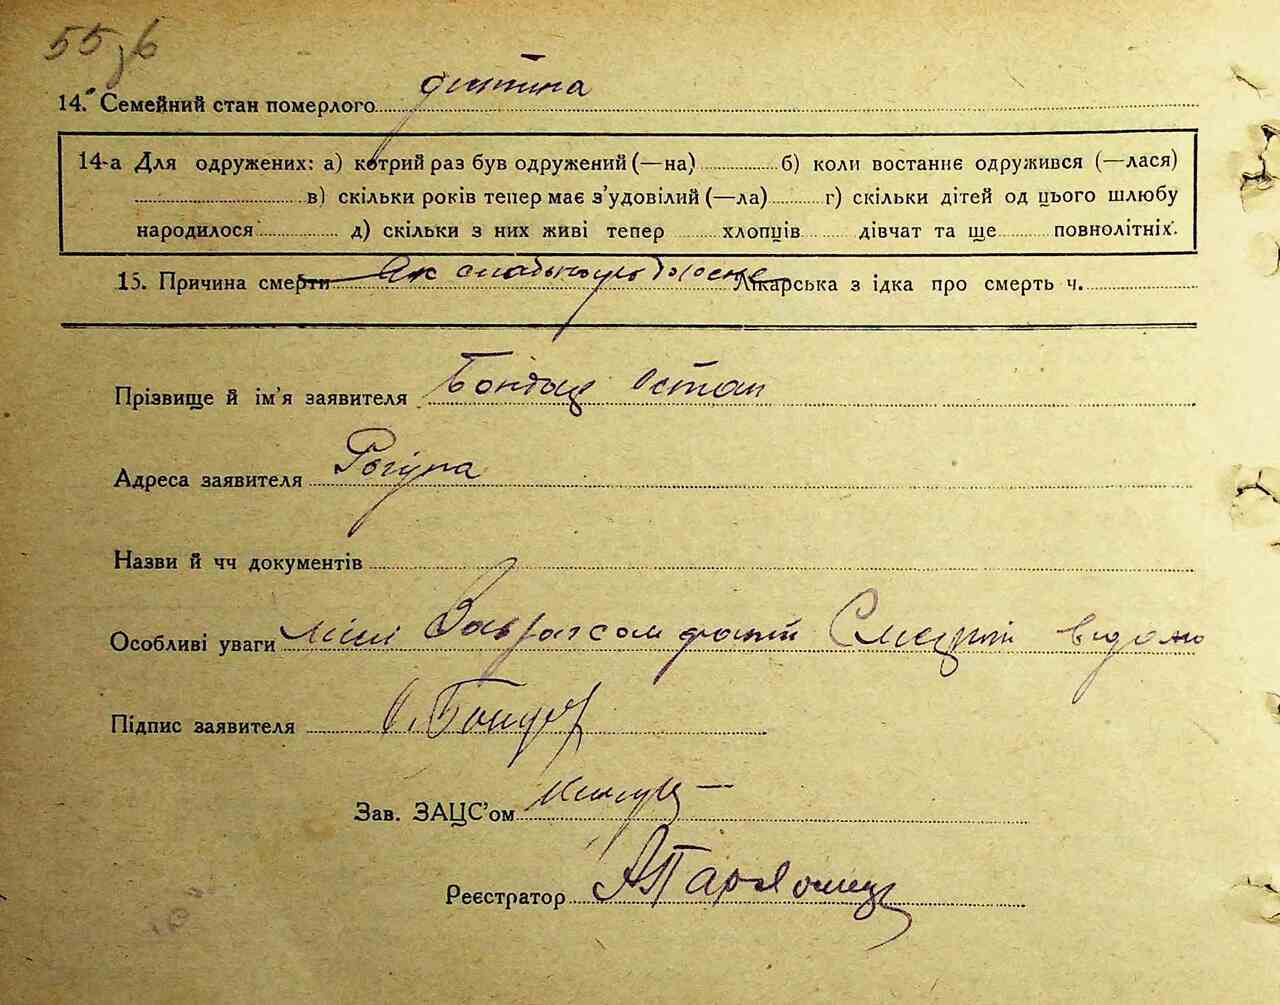 55
14. Семейний стан померлого дитина
14-а Для одружених: а) котрий раз був одружений (—на) б) коли востаннє одружився (—лася)
в) скільки років тепер має з'удовілий (—ла) г) скільки дітей од цього шлюбу
народилося д) скільки з них живі тепер хлопців дівчат та ще повнолітніх.
15. Причина смерти Лікарська з ідка про смерть ч.
Прізвище й ім'я заявителя Бондар Остап
Адреса заявителя
Назви й чч документів
Особливі уваги мині факт Смерти відомо
Підпис заявителя О. Бондар
Зав. ЗАЦС'ом
Реєстратор